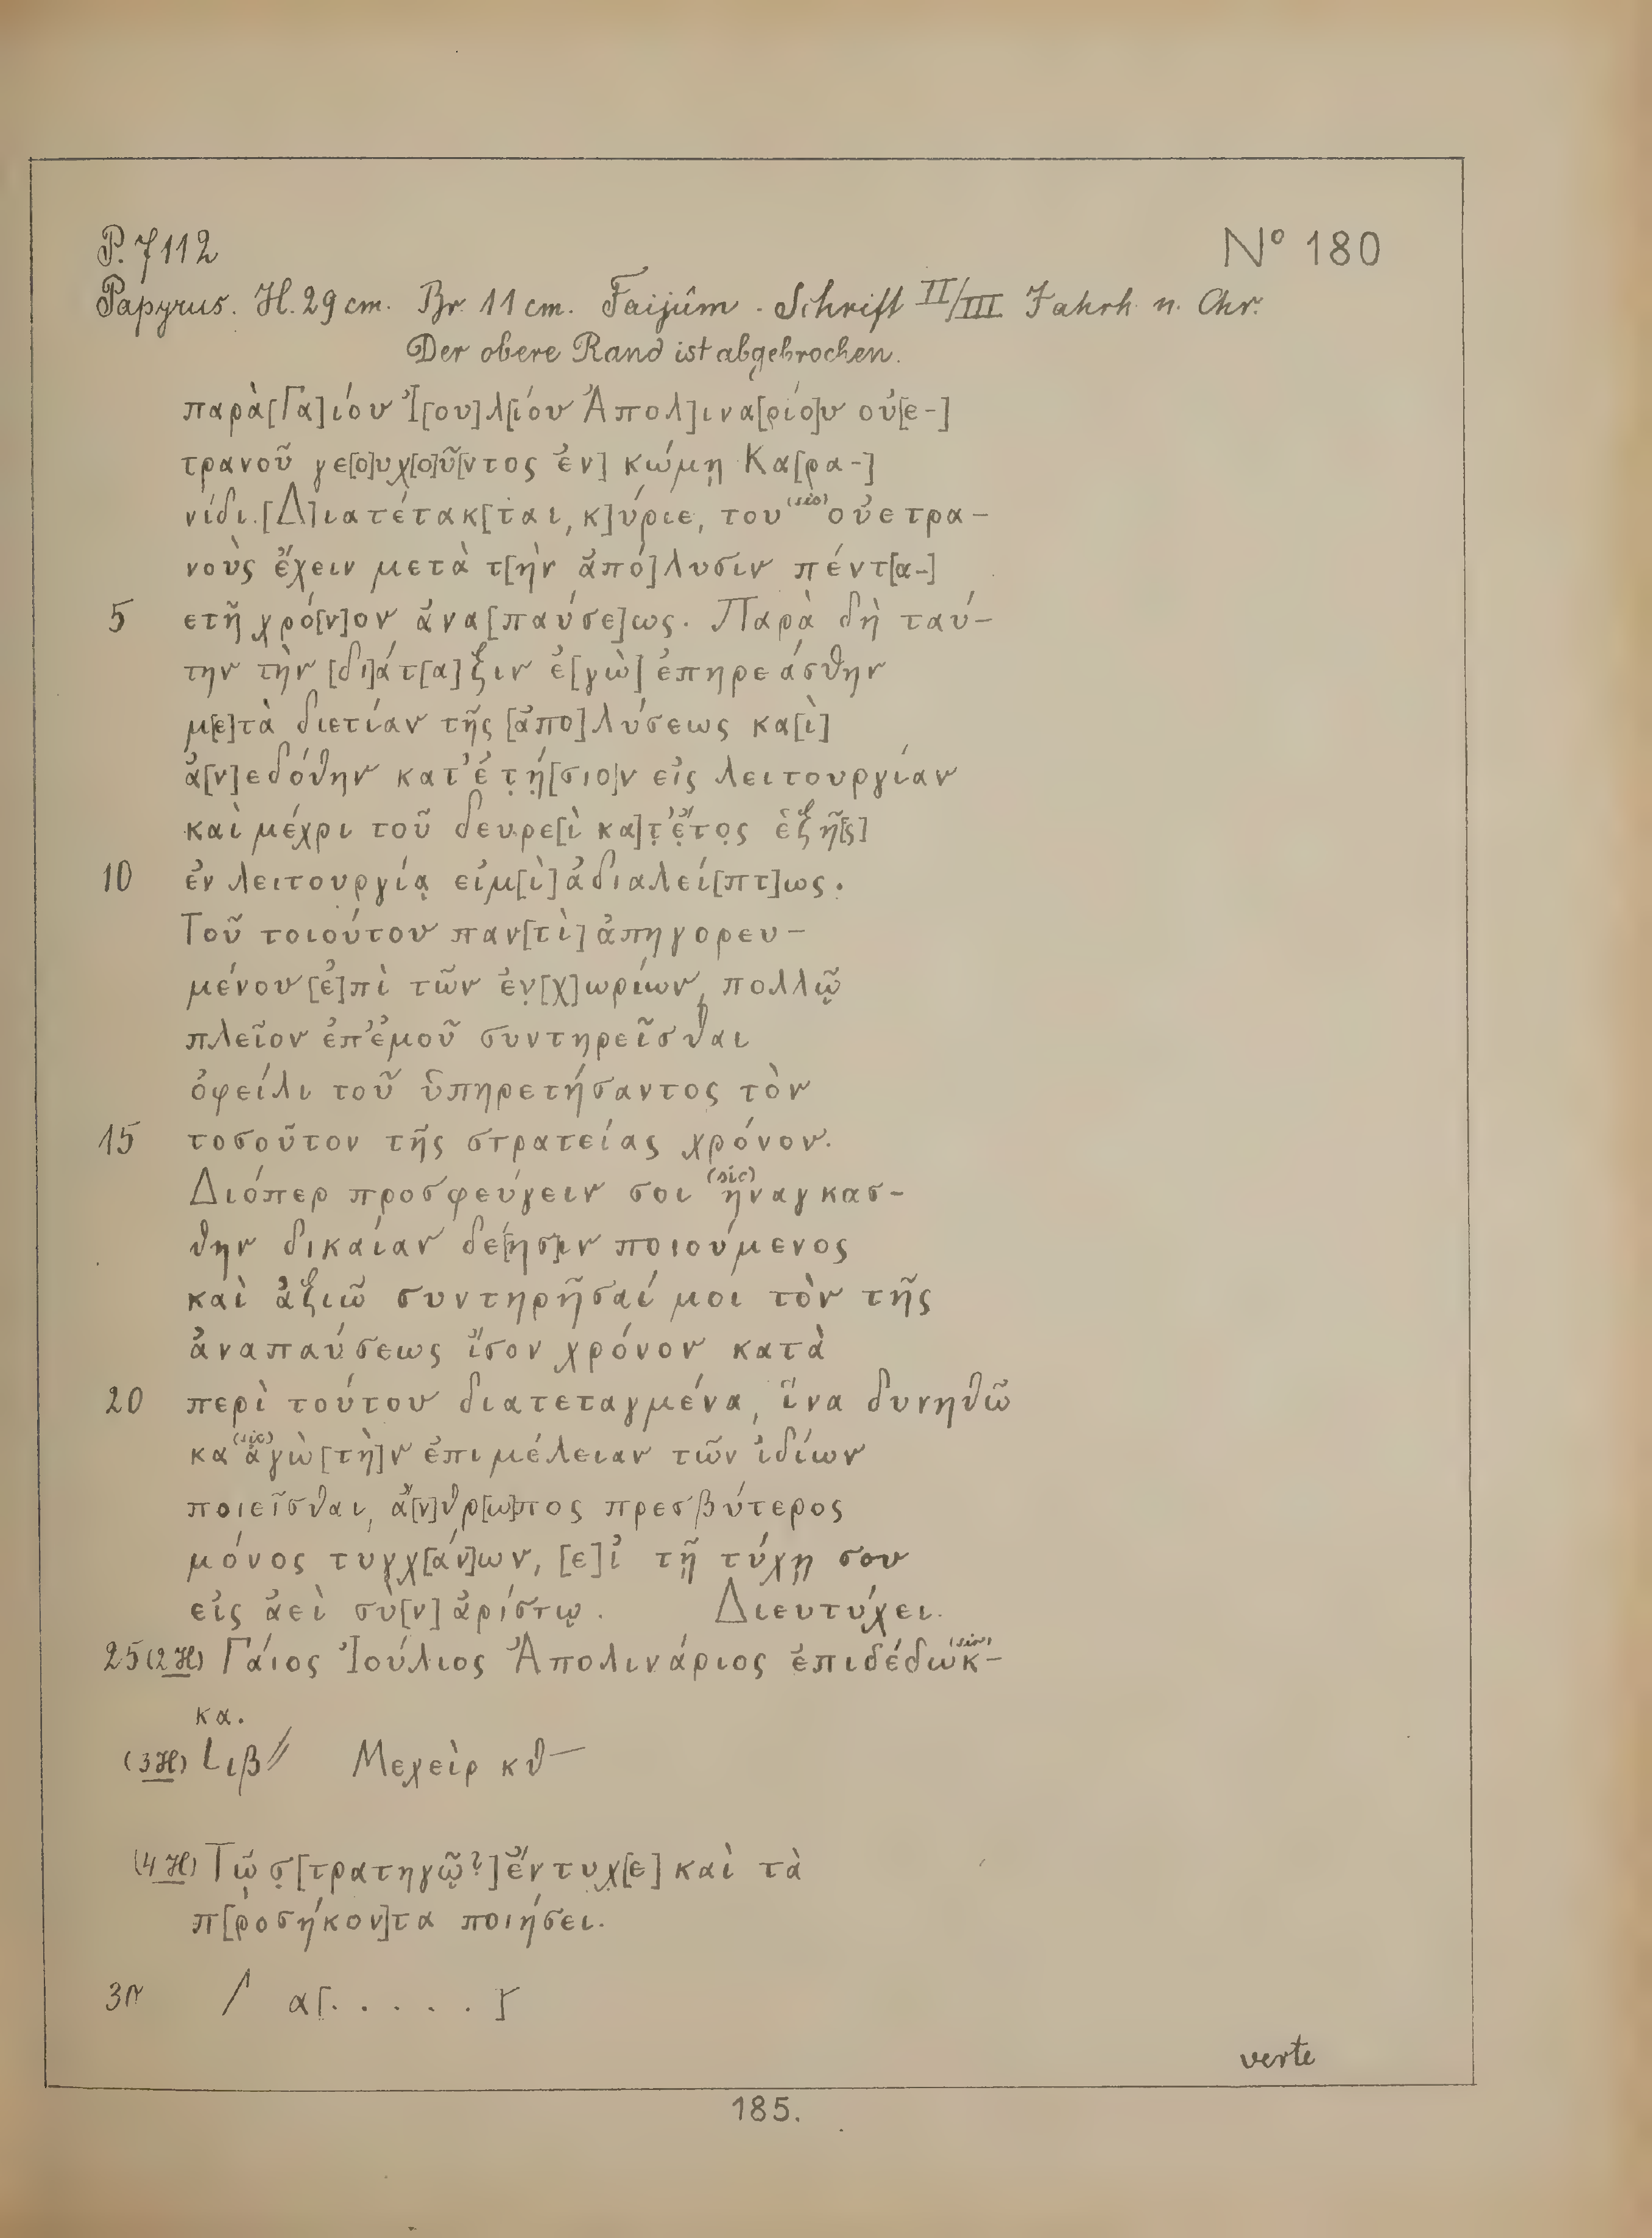 P. 7112
N° 180
Papyrus. H. 29 cm. Br. 11 cm. Faijûm. Schrift II/III Jahrh. n. Chr.
Der obere Rand ist abgebrochen.
παρὰ [Γα]ίου Ἰ[ου]λ[ίου Ἀπολ]ινα[ρίο]υ οὐ[ε-]
τρανοῦ γε[ο]υχ[ο]ῦ[ντος ἐν] κώμῃ Κα[ρα-]
νίδι. [Δ]ιατέτακ[ται, κ]ύριε, του (sic) οὐετρα-
νοὺς ἔχειν μετὰ τ[ὴν ἀπό]λυσιν πέντ[α-]
5 ετῆ χρό[ν]ον ἀνα[παύσε]ως. Παρὰ δὴ ταύ-
την τὴν [δι]άτ[α]ξιν ἐ[γὼ] ἐπηρεάσθην
μ[ε]τὰ διετίαν τῆς [ἀπο]λύσεως κα[ὶ]
ἀ[ν]εδόθην κατ' ἐτ̣ή̣[σιο]ν εἰς λειτουργίαν
καὶ μέχρι τοῦ δευρε[ὶ κα]τ̣' ἔ̣τος̣ ἑξῆ[ς]
10 ἐν λειτουργίᾳ εἰμ[ὶ] ἀδιαλεί[πτ]ως.
Τοῦ τοιούτου παν[τὶ] ἀπηγορευ-
μένου [ἐ]πὶ τῶν ἐν̣[χ]ωρίων, πολλῷ
πλεῖον ἐπ' ἐμοῦ συντηρεῖσθαι
ὀφείλι τοῦ ὑπηρετήσαντος τὸν
15 τοσοῦτον τῆς στρατείας χρόνον.
Διόπερ προσφεύγειν σοι (sic) ἠναγκασ-
θην δικαίαν δέ[ησ]ιν ποιούμενος
καὶ ἀξιῶ συντηρῆσαί μοι τὸν τῆς
ἀναπαύσεως ἴσον χρόνον κατὰ
20 περὶ τούτου διατεταγμένα, ἵνα δυνηθῶ
κα (sic) ἀγὼ [τὴ]ν ἐπιμέλειαν τῶν ἰδίων
ποιεῖσθαι, ἄ[ν]θρ[ω]πος πρεσβύτερος
μόνος τυγχ[άν]ων, [ε]ἰ τῇ τύχῃ σου
εἰς ἀεὶ σὺ[ν] ἀρίστῳ. Διευτύχει.
25 (2 H) Γάιος Ἰούλιος Ἀπολινάριος ἐπιδέδωκ- (sic)
κα.
(3 H) L ιβ// Μεχεὶρ κθ—
(4 H) Τῷ σ̣[τρατηγῷ?] ἔντυχ[ε] καὶ τὰ
π[ροσήκον]τα ποιήσει.
30 / α[. . . . . ]
verte
185.